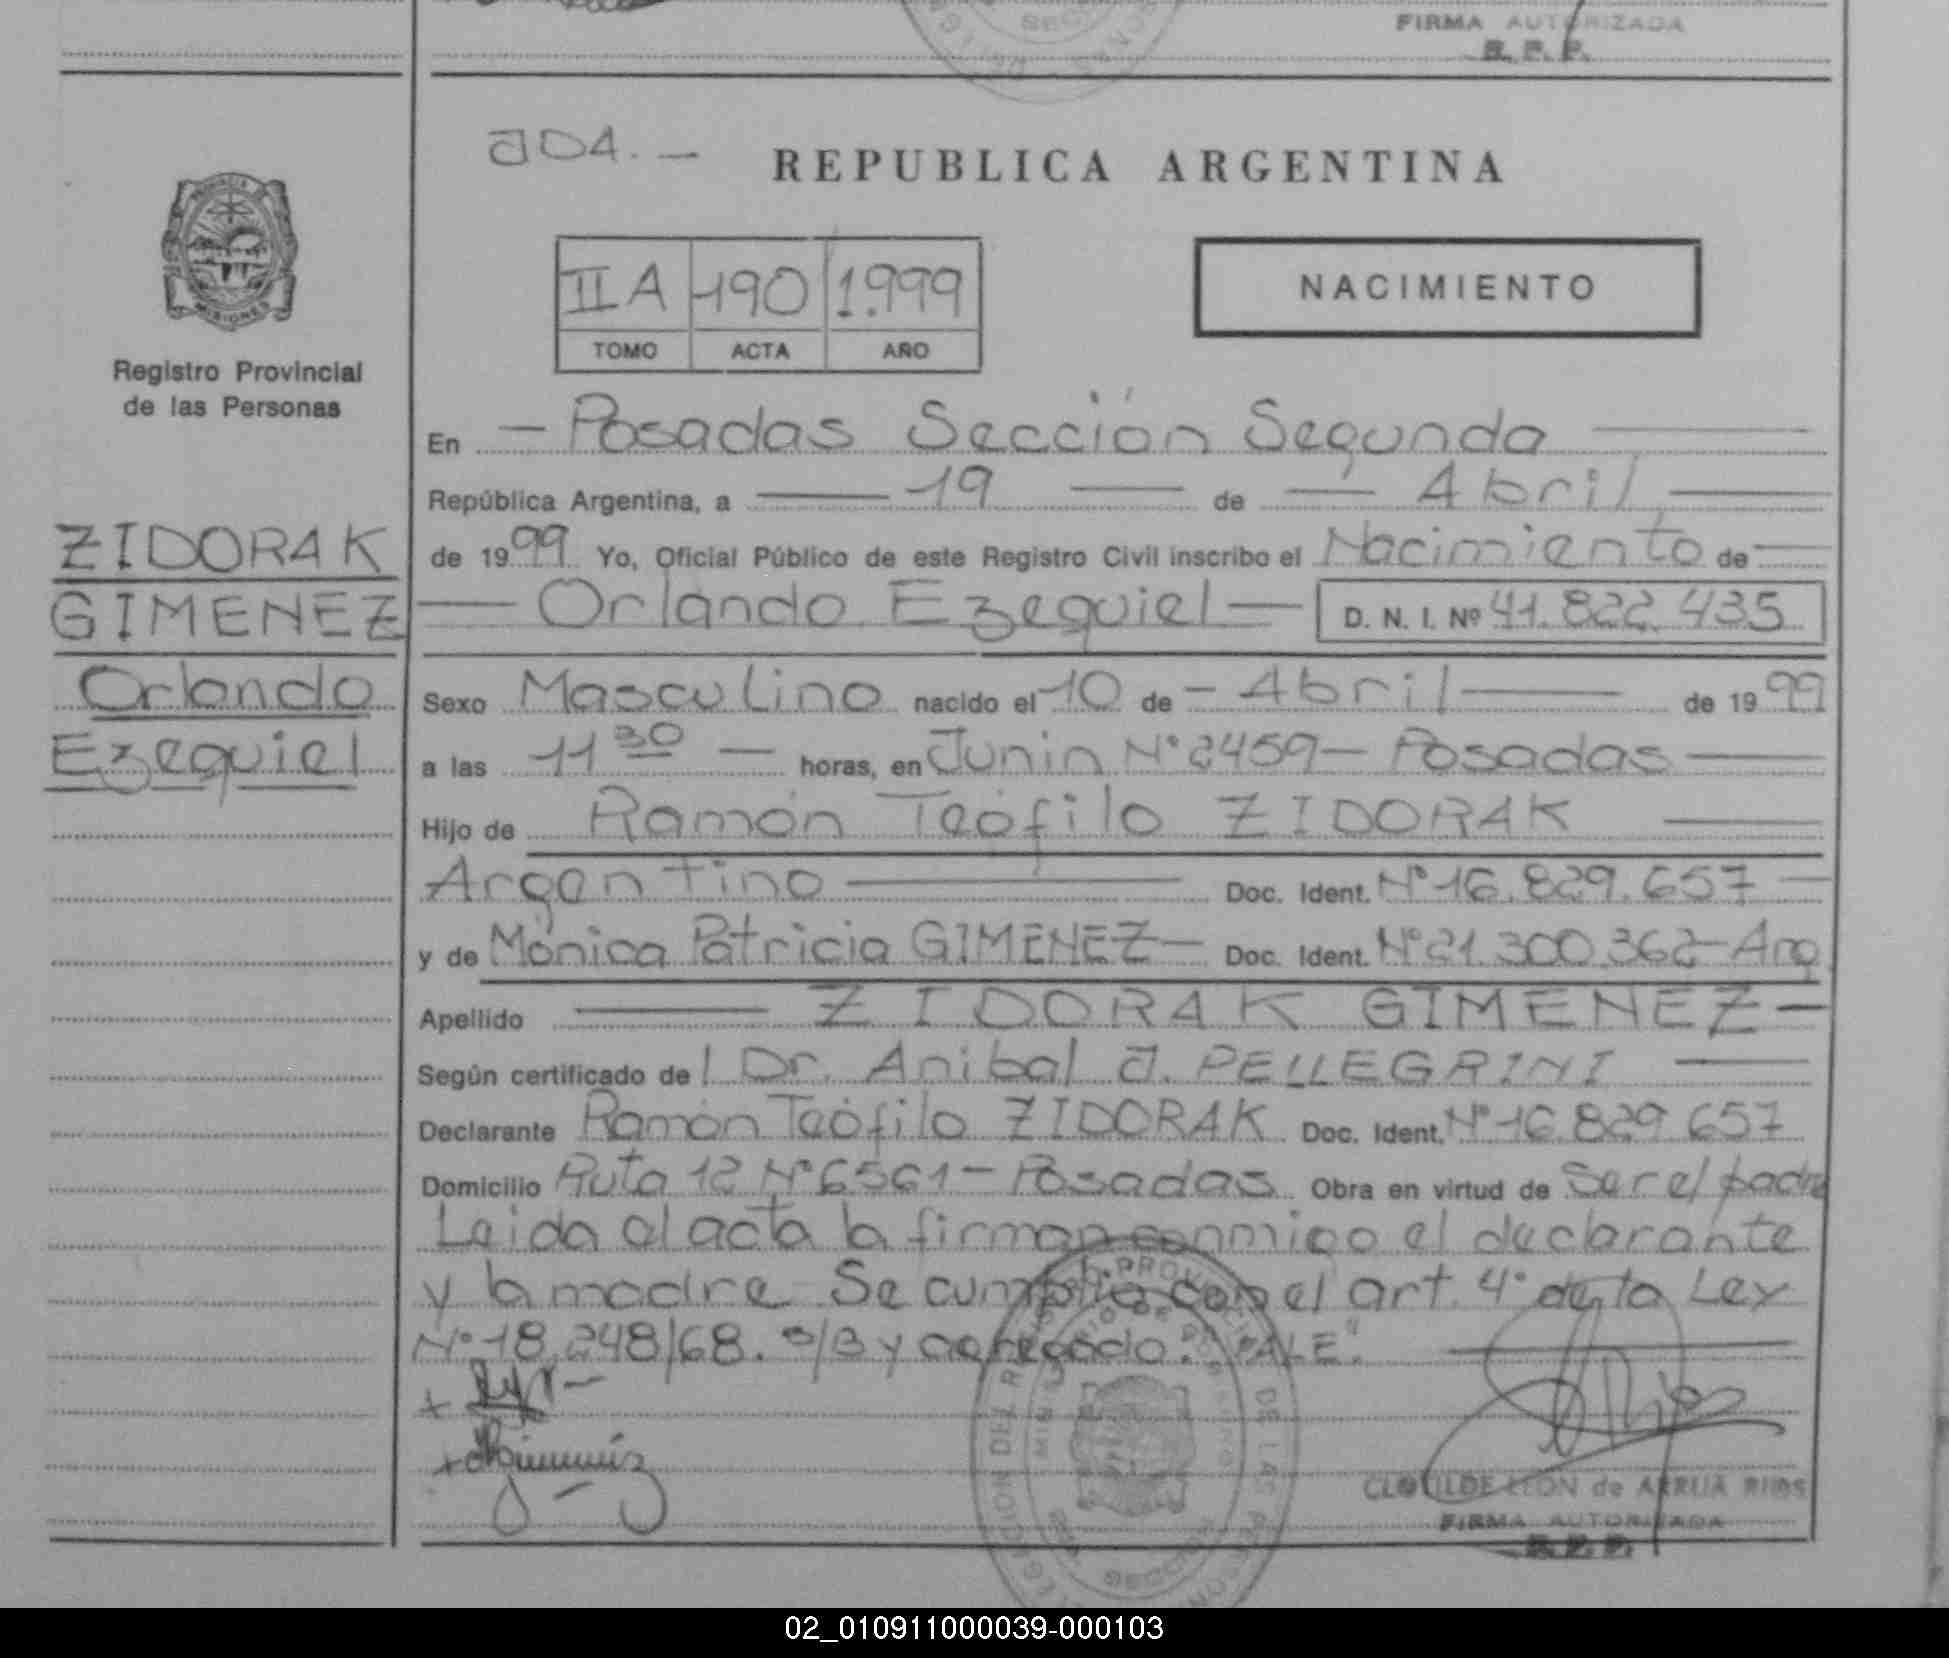 FIRMA AUTORIZADA
R. P. P.
204.-
REPUBLICA ARGENTINA
II A 190 1.999
TOMO ACTA AÑO
NACIMIENTO
MISIONES
Registro Provincial
de las Personas
ZIDORAK
GIMENEZ
Orlando
Ezequiel
En - Posadas Sección Segunda
República Argentina, a 19 de Abril
de 1999 Yo, Oficial Público de este Registro Civil inscribo el Nacimiento de
Orlando Ezequiel - D. N. I. Nº 41.822.435
Sexo Masculino nacido el 10 de - Abril de 1999
a las 11 30 - horas, en Junin Nº 2459 - Posadas
Hijo de Ramón Teófilo ZIDORAK
Argentino Doc. Ident. Nº 16.829.657
y de Mónica Patricia GIMENEZ - Doc. Ident. Nº 21.300.362 - Arg
Apellido ZIDORAK GIMENEZ -
Según certificado del Dr. Anibal J. PELLEGRINI
Declarante Ramón Teófilo ZIDORAK Doc. Ident. Nº 16.829.657
Domicilio Ruta 12 Nº 6561 - Posadas Obra en virtud de Ser el padre
Leida el acta la firman conmigo el declarante
y la madre. Se cumplió con el art. 4º de la Ley
Nº 18.248/68. s/B y agregado. "VALE".
CLOTILDE LEON de ARRUA RIOS
FIRMA AUTORIZADA
R. P. P.
02_010911000039-000103